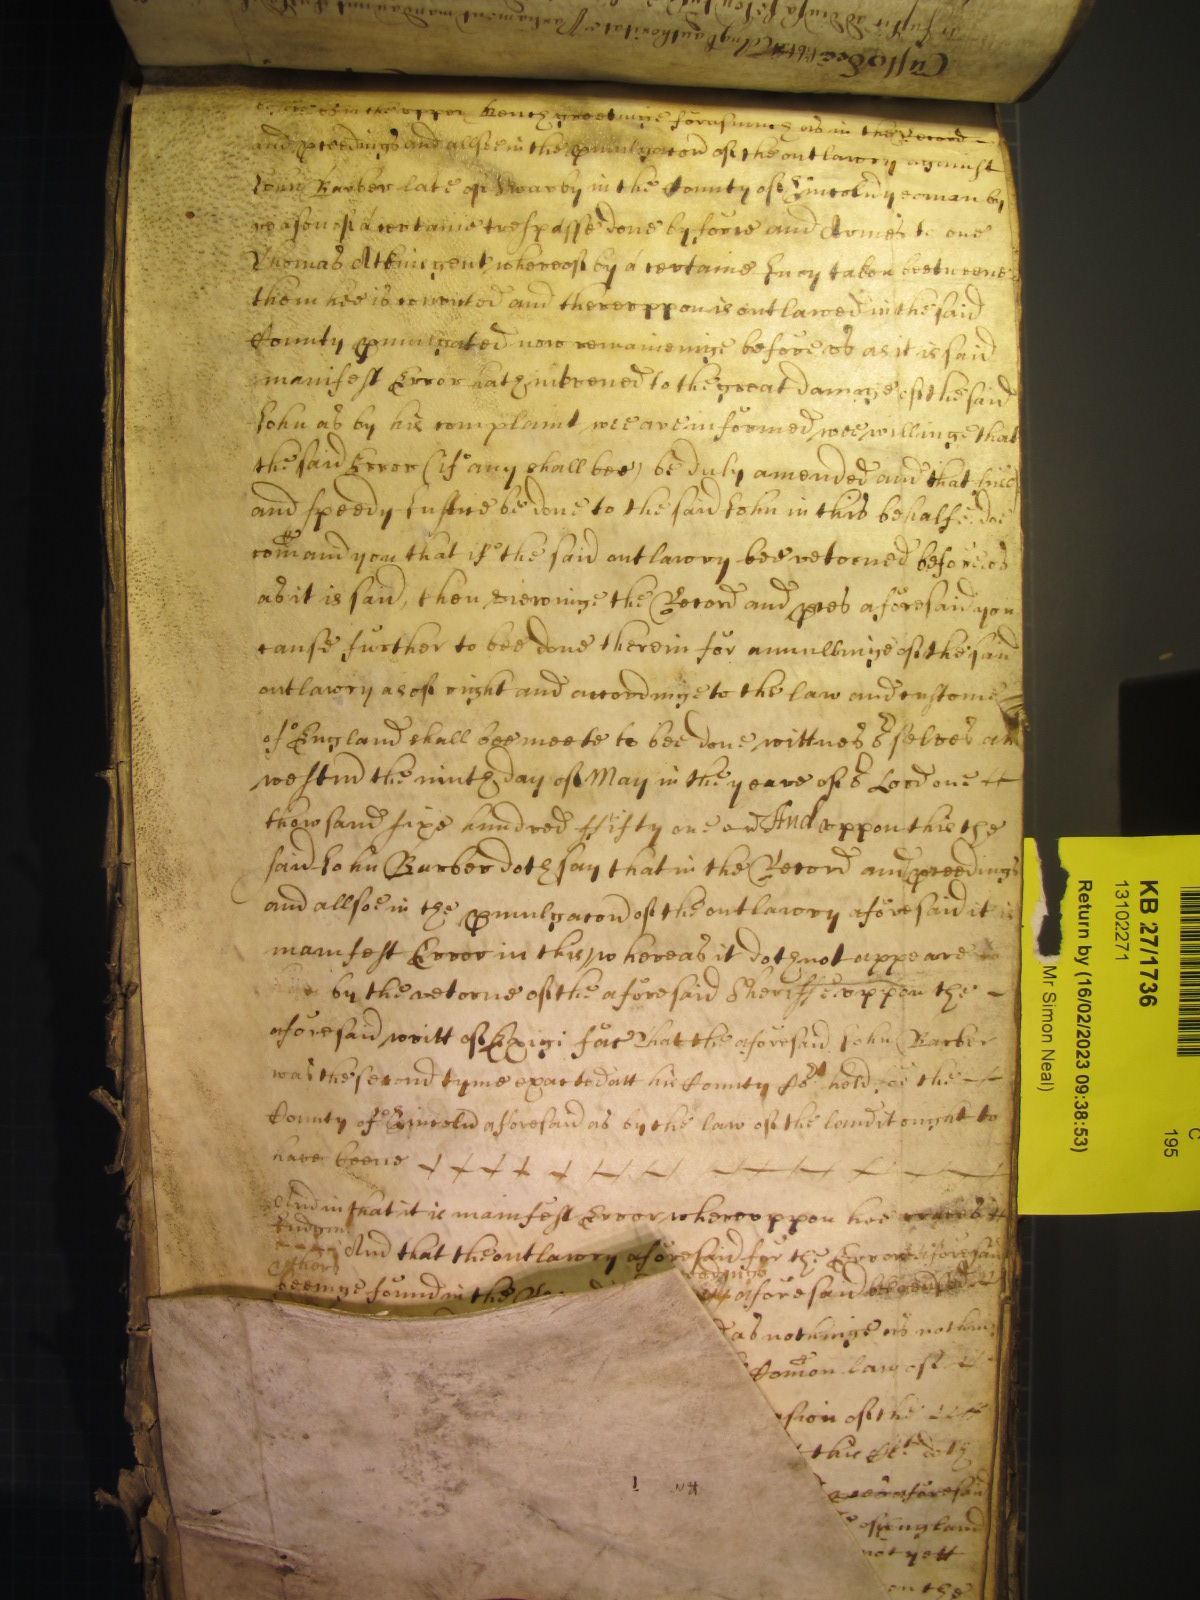 in the upper bench greetinge forasmuch as in the Record
and pceedings and allsoe in the pmulgacon of the outlawry against
John Barber late of in the County of Lincoln yeoman by
reason of a certaine trespasse done by force and Armes to one
Thomas Atkin gent whereof by a certaine Jury taken betweene
them hee is convicted and thereuppon is outlawed in the said
County pmulgated now remaineinge before us as it is said
manifest Error hath intervened to the great damage of the said
John as by his complaint wee are informed wee willinge that
the said Error (if any shall bee) be duly amended and that full
and speedy Justice be done to the said John in this behalfe doe
comand you that if the said outlawry bee retorned before us
as it is said, then viewinge the Record and pces aforesaid you
cause further to bee done therein for anullinge of the said
outlawry as of right and accordinge to the law and custome
of England shall bee meete to bee done wittnes or selves att
Westm the ninth day of May in the yeare of or Lord one
thousand sixe hundred fifty one And uppon this the
said John Barber doth say that in the Record and pceedings
and allsoe in the pmulgacon of the outlawry aforesaid it is
manifest Error in this, whereas it doth not appeare
by the retorne of the aforesaid Sheriffe uppon the
aforesaid writt of Exigi fac That the aforesaid John Barber
was the second tyme exacted att his County Ct held for the
County of Lincoln aforesaid as by the law of the land it ought to
have beene
And in that it is manifest Error whereuppon hee craves
Judgmt
And that the outlawry aforesaid for the Errors aforesaid
others
beeinge found in the pceedings aforesaid
as nothinge
Comon law of
of the
this Ct doth
aforesaid
of England
not yett
on the
KB 27/1736
13102271
Return by (16/02/2023 09:38:53)
Mr Simon Neal)
C
195